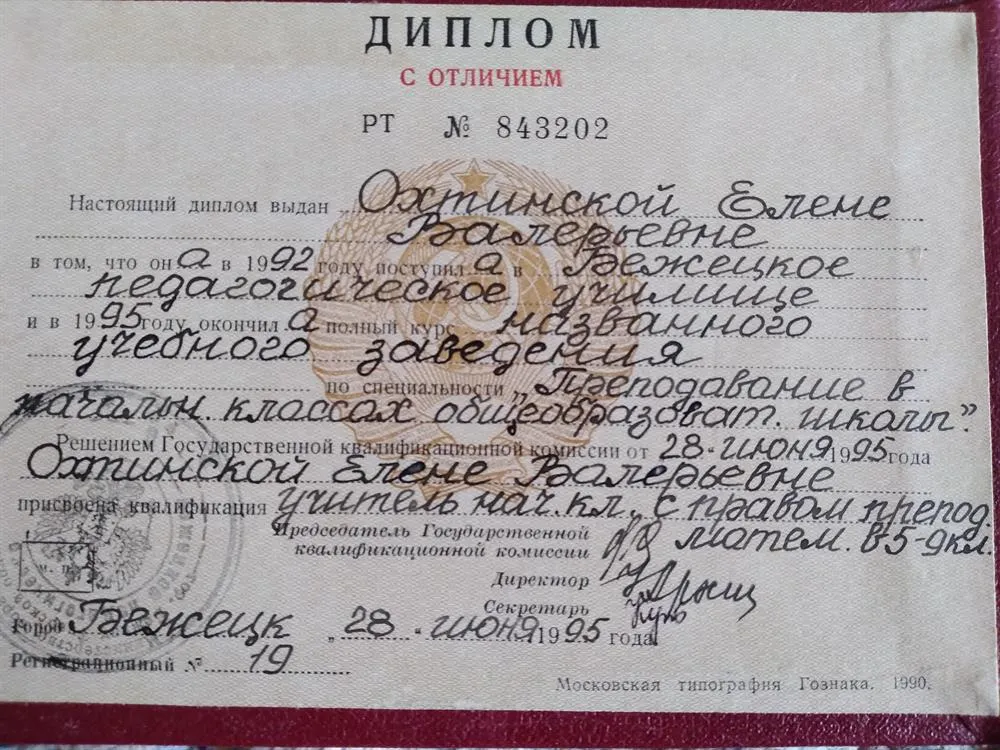 ДИПЛОМ
С ОТЛИЧИЕМ
РТ № 843202
Настоящий диплом выдан „Охтинской Елене
Валерьевне
в том, что он а в 1992 году поступил а в Бежецкое
педагогическое училище
и в 1995 году окончил а полный курс названного
учебного заведения
по специальности „Преподавание в
начальн. классах общеобразоват. школы".
Решением Государственной квалификационной комиссии от 28 июня 1995 года
Охтинской Елене Валерьевне
присвоена квалификация учитель нач. кл. с правом препод.
матем. в 5-9 кл.
Председатель Государственной
квалификационной комиссии
Директор
Секретарь
Город Бежецк „28 июня 1995 года
Регистрационный № 19
М. П.
Московская типография Гознака. 1990.